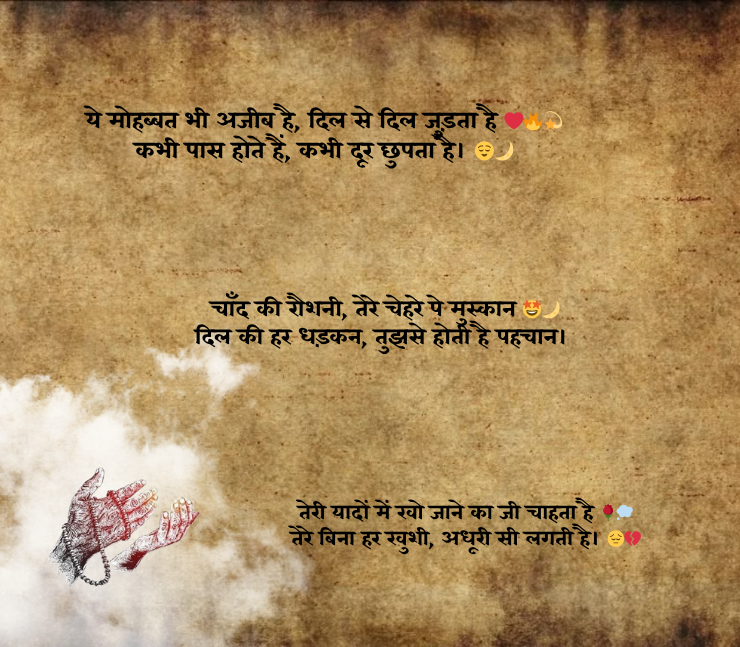 ये मोहब्बत भी अजीब है, दिल से दिल जुड़ता है ❤️🔥💫
कभी पास होते हैं, कभी दूर छुपता है। 😌🌙
चाँद की रौशनी, तेरे चेहरे पे मुस्कान 🤩🌙
दिल की हर धड़कन, तुझसे होती है पहचान।
तेरी यादों में खो जाने का जी चाहता है 🌹💭
तेरे बिना हर खुशी, अधूरी सी लगती है। 😔💔